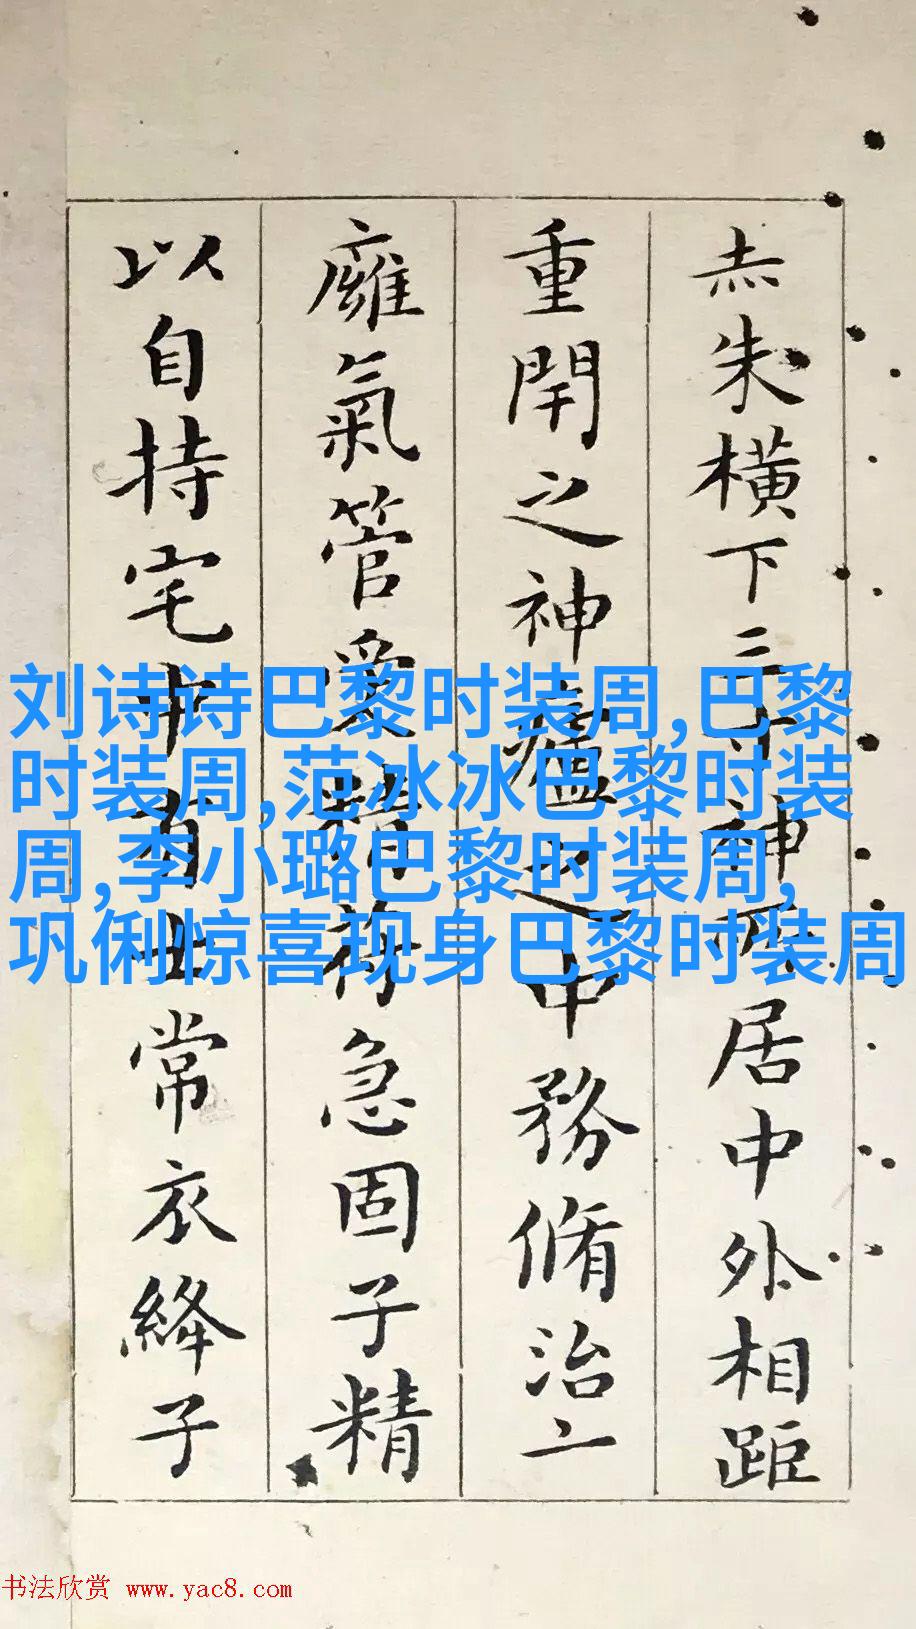 赤朱橫下三寸神所居中外相距
重閇之神廬之中務脩治
癰氣管受精符急固子精
以自持宅中有士常衣絳子
刘诗诗巴黎时装周,巴黎
时装周,范冰冰巴黎时装
周,李小璐巴黎时装周,
巩俐惊喜现身巴黎时装周
书法欣赏 www.yac8.com